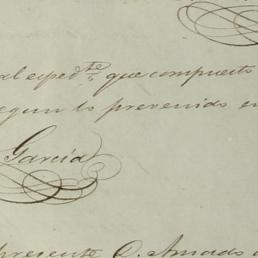 al exped.te que compuesto
segun lo prevenido en
Garcia
presente C. Amado